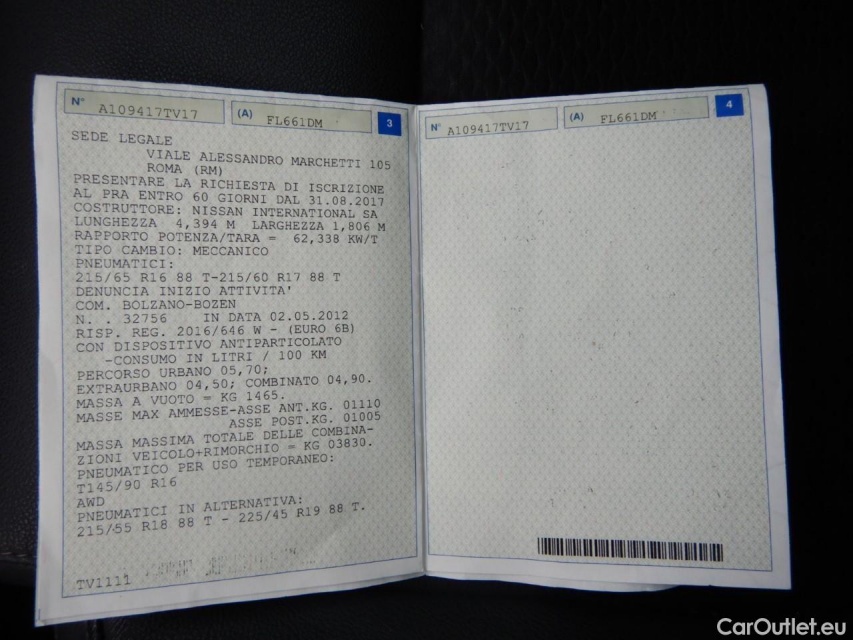 N° A109417TV17 (A) FL661DM 3
SEDE LEGALE
VIALE ALESSANDRO MARCHETTI 105
ROMA (RM)
PRESENTARE LA RICHIESTA DI ISCRIZIONE
AL PRA ENTRO 60 GIORNI DAL 31.08.2017
COSTRUTTORE: NISSAN INTERNATIONAL SA
LUNGHEZZA 4,394 M LARGHEZZA 1,806 M
RAPPORTO POTENZA/TARA = 62,338 KW/T
TIPO CAMBIO: MECCANICO
PNEUMATICI:
215/65 R16 88 T-215/60 R17 88 T
DENUNCIA INIZIO ATTIVITA'
COM. BOLZANO-BOZEN
N. . 32756 IN DATA 02.05.2012
RISP. REG. 2016/646 W - (EURO 6B)
CON DISPOSITIVO ANTIPARTICOLATO
-CONSUMO IN LITRI / 100 KM
PERCORSO URBANO 05,70;
EXTRAURBANO 04,50; COMBINATO 04,90.
MASSA A VUOTO = KG 1465.
MASSE MAX AMMESSE-ASSE ANT.KG. 01110
ASSE POST.KG. 01005
MASSA MASSIMA TOTALE DELLE COMBINA-
ZIONI VEICOLO+RIMORCHIO = KG 03830.
PNEUMATICO PER USO TEMPORANEO:
T145/90 R16
AWD
PNEUMATICI IN ALTERNATIVA:
215/55 R18 88 T - 225/45 R19 88 T.
TV1111
N° A109417TV17 (A) FL661DM 4
CarOutlet.eu